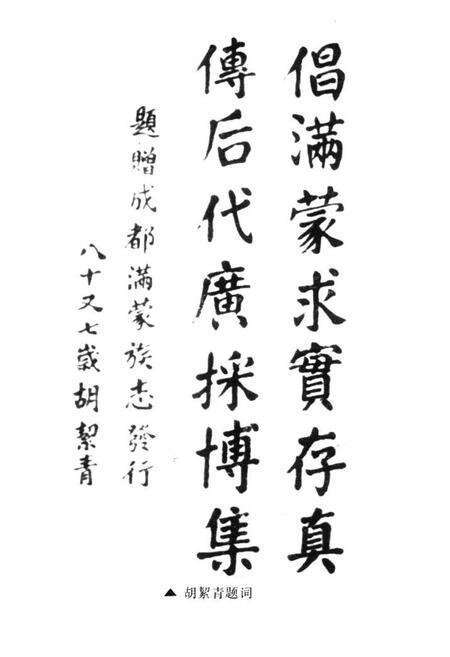 倡滿蒙求實存真
傳后代廣採博集
題贈成都滿蒙族志發行
八十又七歲胡絜青
▲ 胡絜青题词